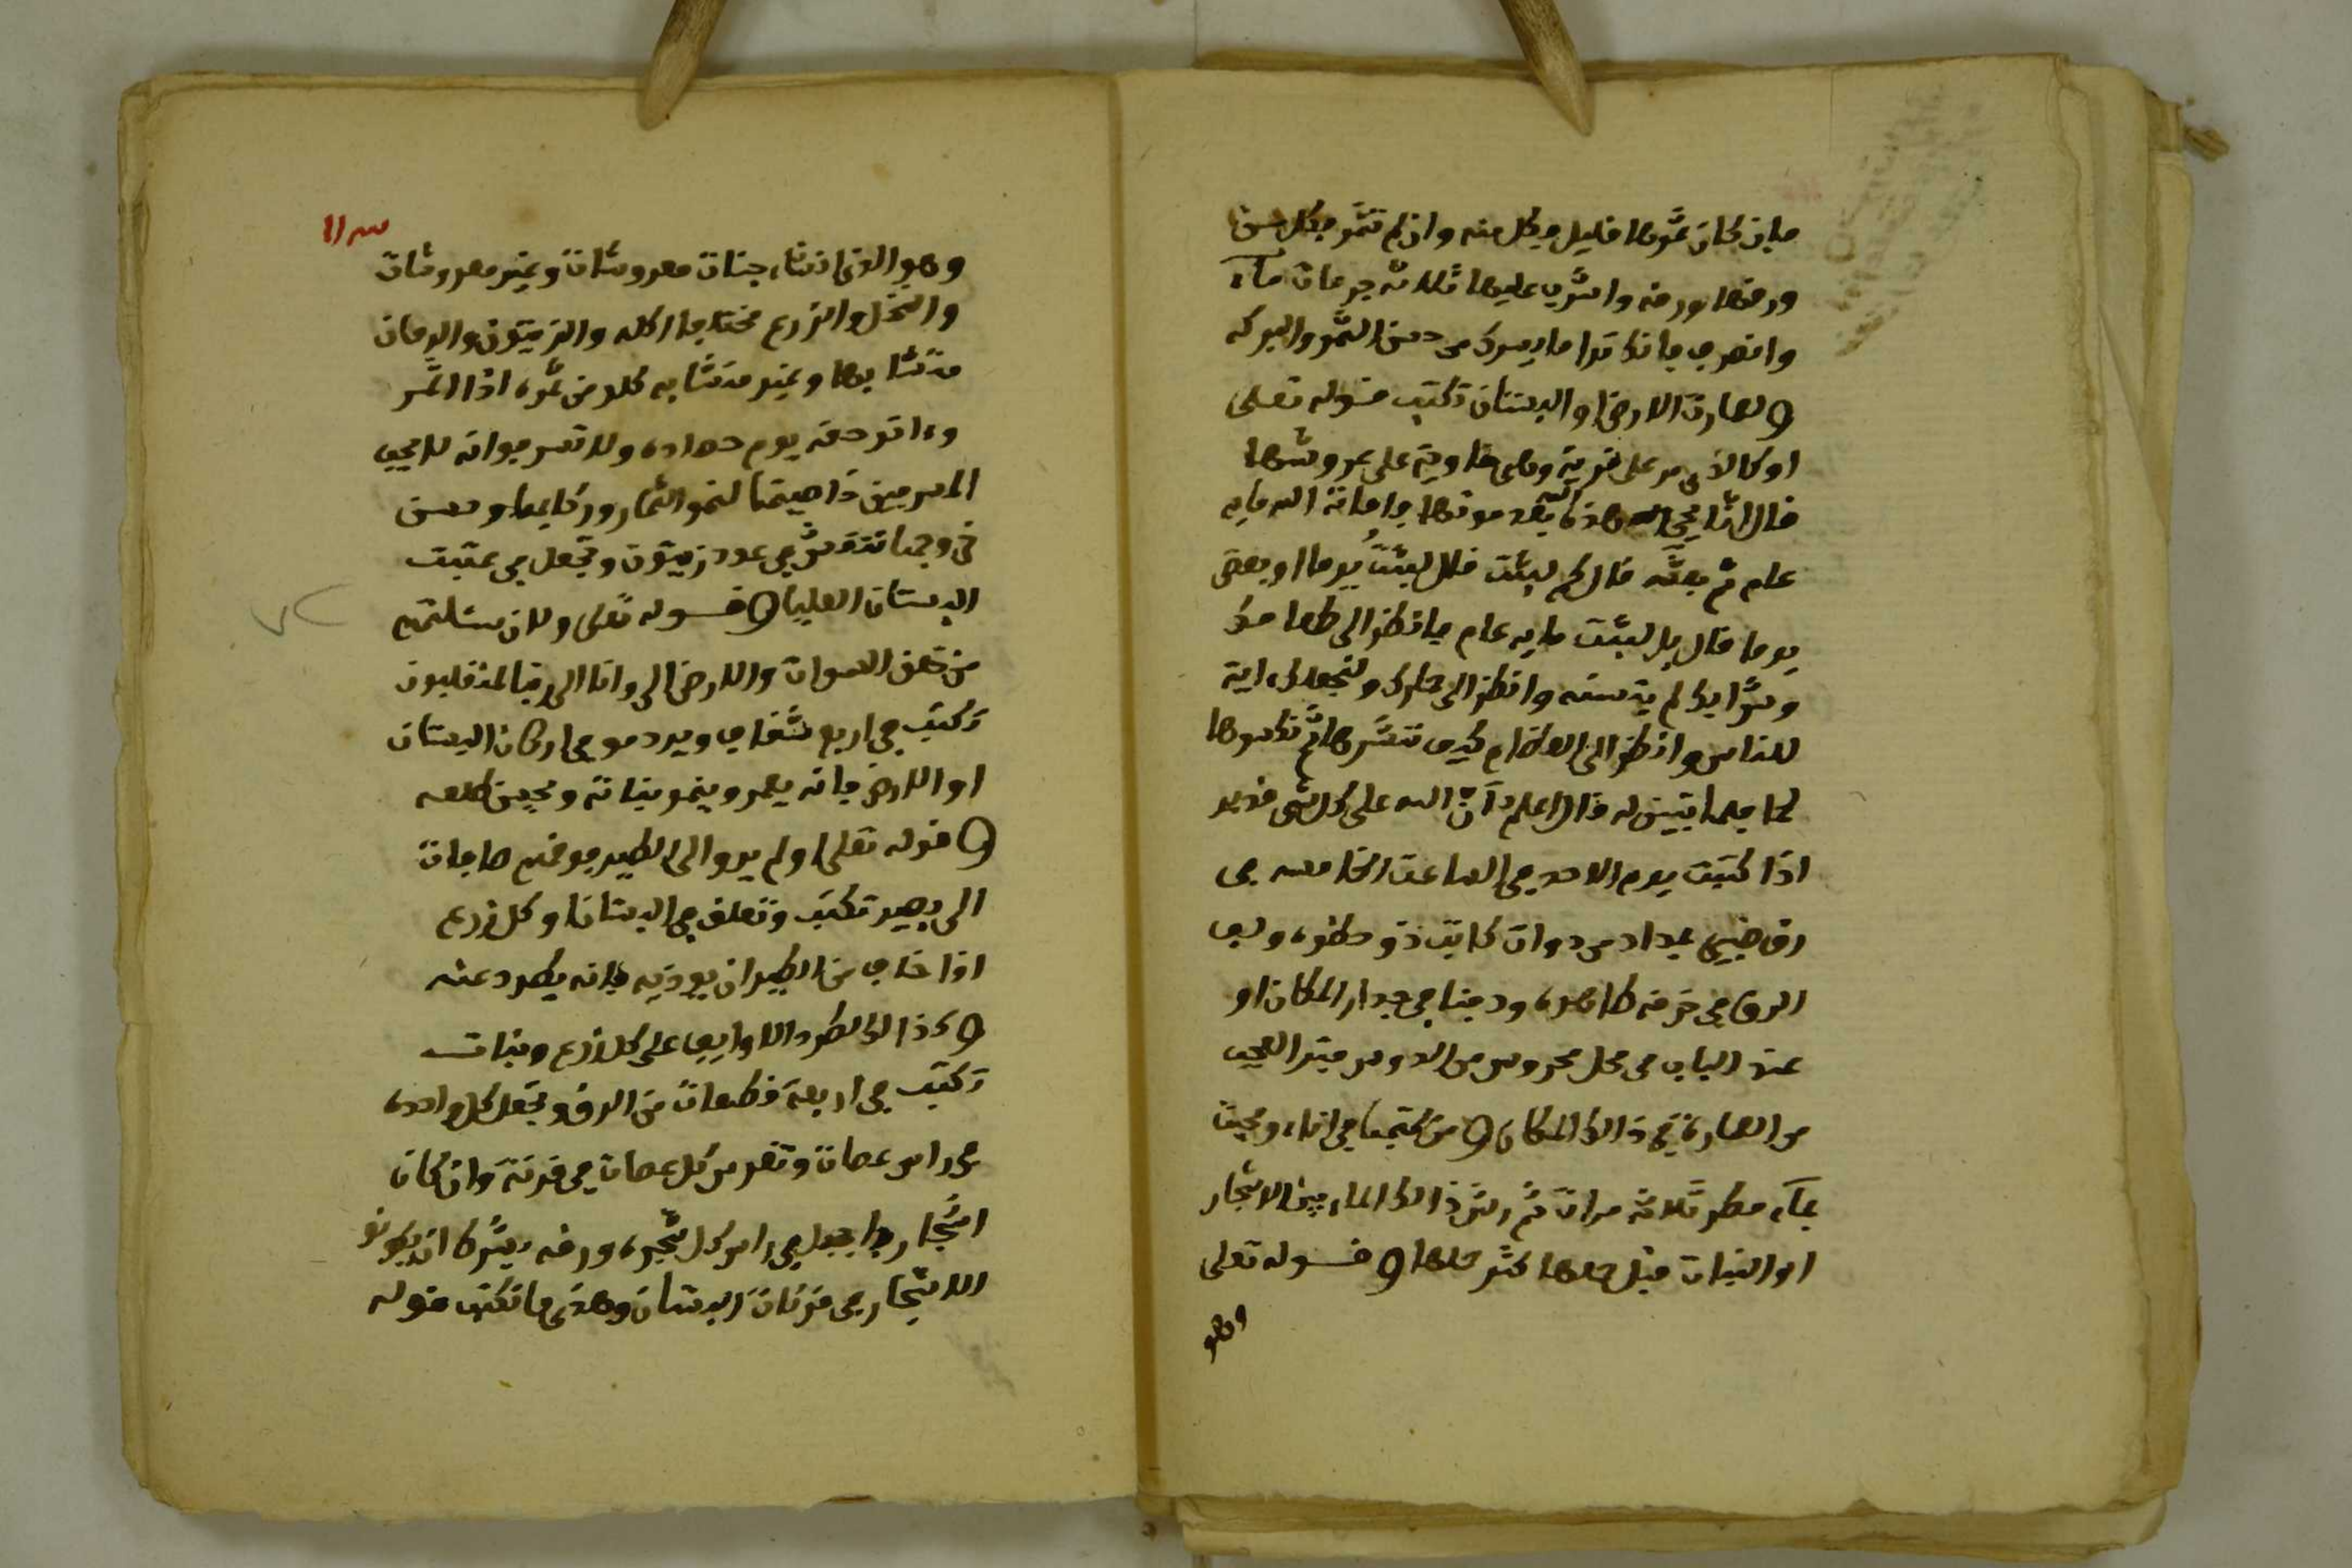 فإن كان ثمرها قليل فكل منه وان لم تثمر فكل من
ورقها ورقه واشرب عليها ثلاثه جرعات ماء
وانصرف فانك ترا ما يسرك من حسن الثمر والبركه
ولعمارت الارض او البستان تكتب قوله تعلى
او كالذي مر على قرية وهي خاوية على عروشها
قال انا يحي هذه الله بعد موتها فاماته الله مايه
عام ثم بعثه قال كم لبثت قال لبثت يوما او بعض
يوما قال بل لبثت مايه عام فانظر الى طعامك
وشرابك لم يتسنه وانظر الى حمارك ولنجعلك ءاية
للناس وانظر الى العظام كيف ننشرها ثم نكسوها
لحما فلما تبين له قال اعلم أن الله على كل شي قدير
اذا كتبت يوم الاحد في الساعت الخامسه في
رق ضبي بمداد من دوات كاتب ذو حظوه ولف
الرق في خرقه طاهره ودفنا في جدار المكان او
عند الباب في محل محروس من الدوس فترا العجب
من العماره في ذالك المكان ومن كتبها في اناء ومحيت
بماء مطر ثلاثه مرات ثم رش ذالك الماء بين الاشجار
او النبات قبل حملها كثر حملها وقوله تعلى
وهو
وهو الذي انشاء جنات معروشات وغير معروشات
والنخل والزرع مختلفا اكله والزيتون والرمان
متشابها وغير متشابه كلو من ثمره اذا اثمر
وءاتو حقه يوم حصاده ولا تسرفوا انه لا يحب
المسرفين خاصيتها لنمو الثمار وزكايها وحسن
خروجها تنقش في عود زيتون وتجعل في عتبت
البستان العليا وقوله تعلى ولان سئلتهم
من خلق السموات والارض الى وانا الى ربنا لمنقلبون
تكتب في اربع شقاف ويردمو في اركان البستان
او الارض فانه يعمر وينمو نباته ويحسن طلعه
وقوله تعلى اولم يروا الى الطير فوقهم صافات
الى بصير تكتب وتعلق في البستان او كل زرع
اذا خاف من الطير ان يوذيه فانه يطرد عنه
وكذالك لطرد الاوايف على كل زرع ونبات
تكتب في اربعة قطعات من الرق وتجعل كل واحده
في راس عصات وتغرس كل عصات في قرنة وان كان
اشجار فاجعل في راس كل شجره ورقه بشرط ان يكونو
الاشجار في قرنات البستان وهذي ما تكتب قوله